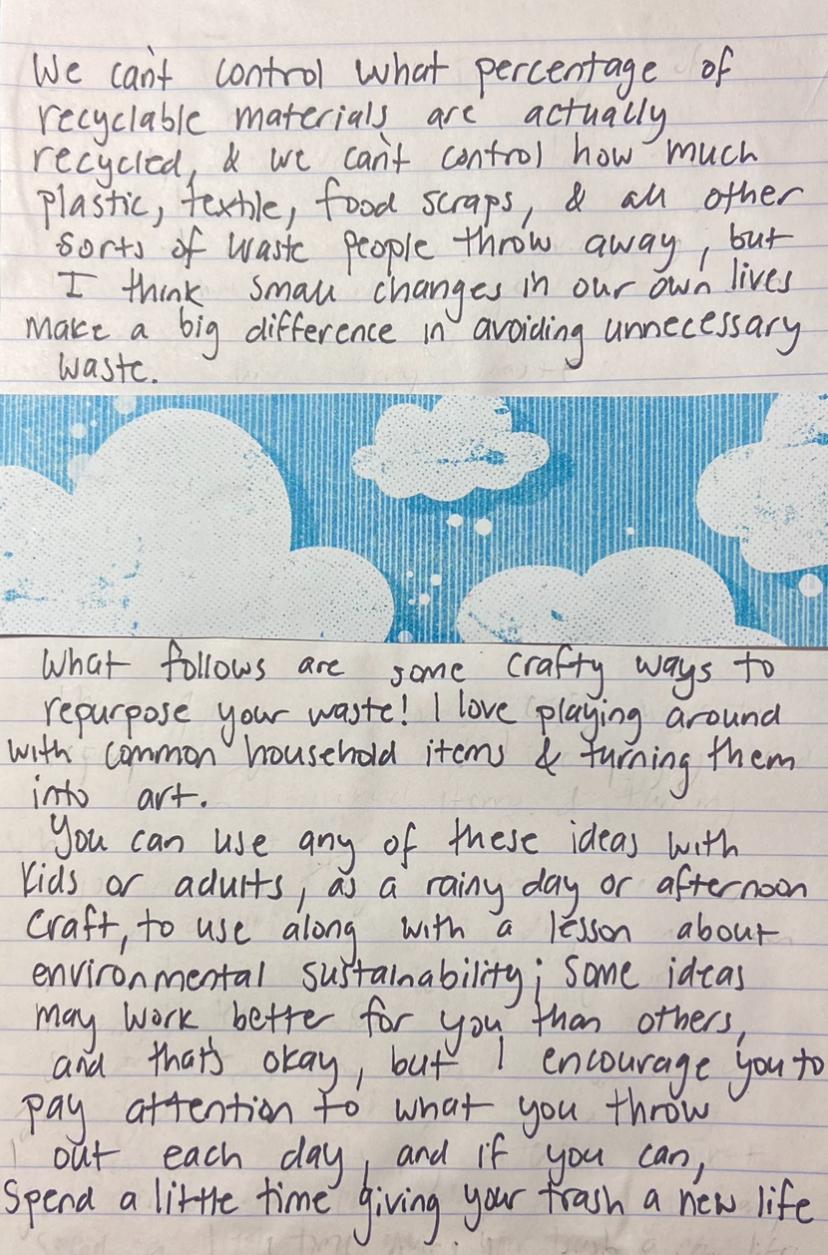 We can't control what percentage of
recyclable materials are actually
recycled, & we can't control how much
plastic, textile, food scraps, & all other
sorts of waste people throw away, but
I think small changes in our own lives
make a big difference in avoiding unnecessary
waste.
What follows are some crafty ways to
repurpose your waste! I love playing around
with common household items & turning them
into art.
You can use any of these ideas with
kids or adults, as a rainy day or afternoon
craft, to use along with a lesson about
environmental sustainability; some ideas
may work better for you than others,
and that's okay, but I encourage you to
pay attention to what you throw
out each day, and if you can,
spend a little time giving your trash a new life